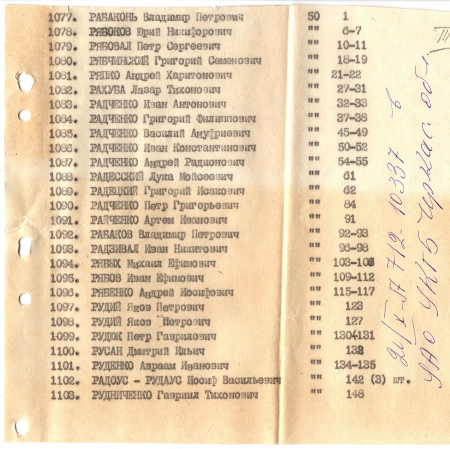 1077. РАБАКОНЬ Владимир Петрович 50 1
1078. РЯБОНОВ Юрий Никифорович "" 6-7
1079. РЯБОВАЛ Петр Сергеевич "" 10-11
1080. РЯБЧИНСКИЙ Григорий Семенович "" 18-19
1081. РЯПКО Андрей Харитонович "" 21-22
1082. РАХУБА Лазар Тихонович "" 27-31
1083. РАДЧЕНКО Иван Антонович "" 32-33
1084. РАДЧЕНКО Григорий Филиппович "" 37-38
1085. РАДЧЕНКО Василий Ануфриевич "" 45-49
1086. РАДЧЕНКО Иван Константинович "" 50-52
1087. РАДЧЕНКО Андрей Радионович "" 54-55
1088. РАДЕССКИЙ Лука Мойсеевич "" 61
1089. РАДЕЦКИЙ Григорий Исакович "" 62
1090. РАДЧЕНКО Петр Григорьевич "" 84
1091. РАЙЧЕНКО Артем Иванович "" 91
1092. РАБАКОВ Владимир Петрович "" 92-93
1093. РАДЗИВАЛ Иван Никитович "" 96-98
1094. РЯБЫХ Михаил Ефимович "" 103-106
1095. РЯБОВ Иван Ефимович "" 109-112
1096. РЯБЕНКО Андрей Иосифович "" 115-117
1097. РУДИЙ Яков Петрович "" 123
1098. РУДИЙ Яков Петрович "" 127
1099. РУДОК Петр Гаврилович "" 130-131
1100. РУСАН Дмитрий Ильич "" 132
1101. РУДЕНКО Авраам Иванович "" 134-135
1102. РАДОУС - РУДАУС Иосиф Васильевич "" 142 (3) шт.
1103. РУДНИЧЕНКО Гавриил Тихонович "" 148
10337 в
УАО УКГБ Черкас. обл.